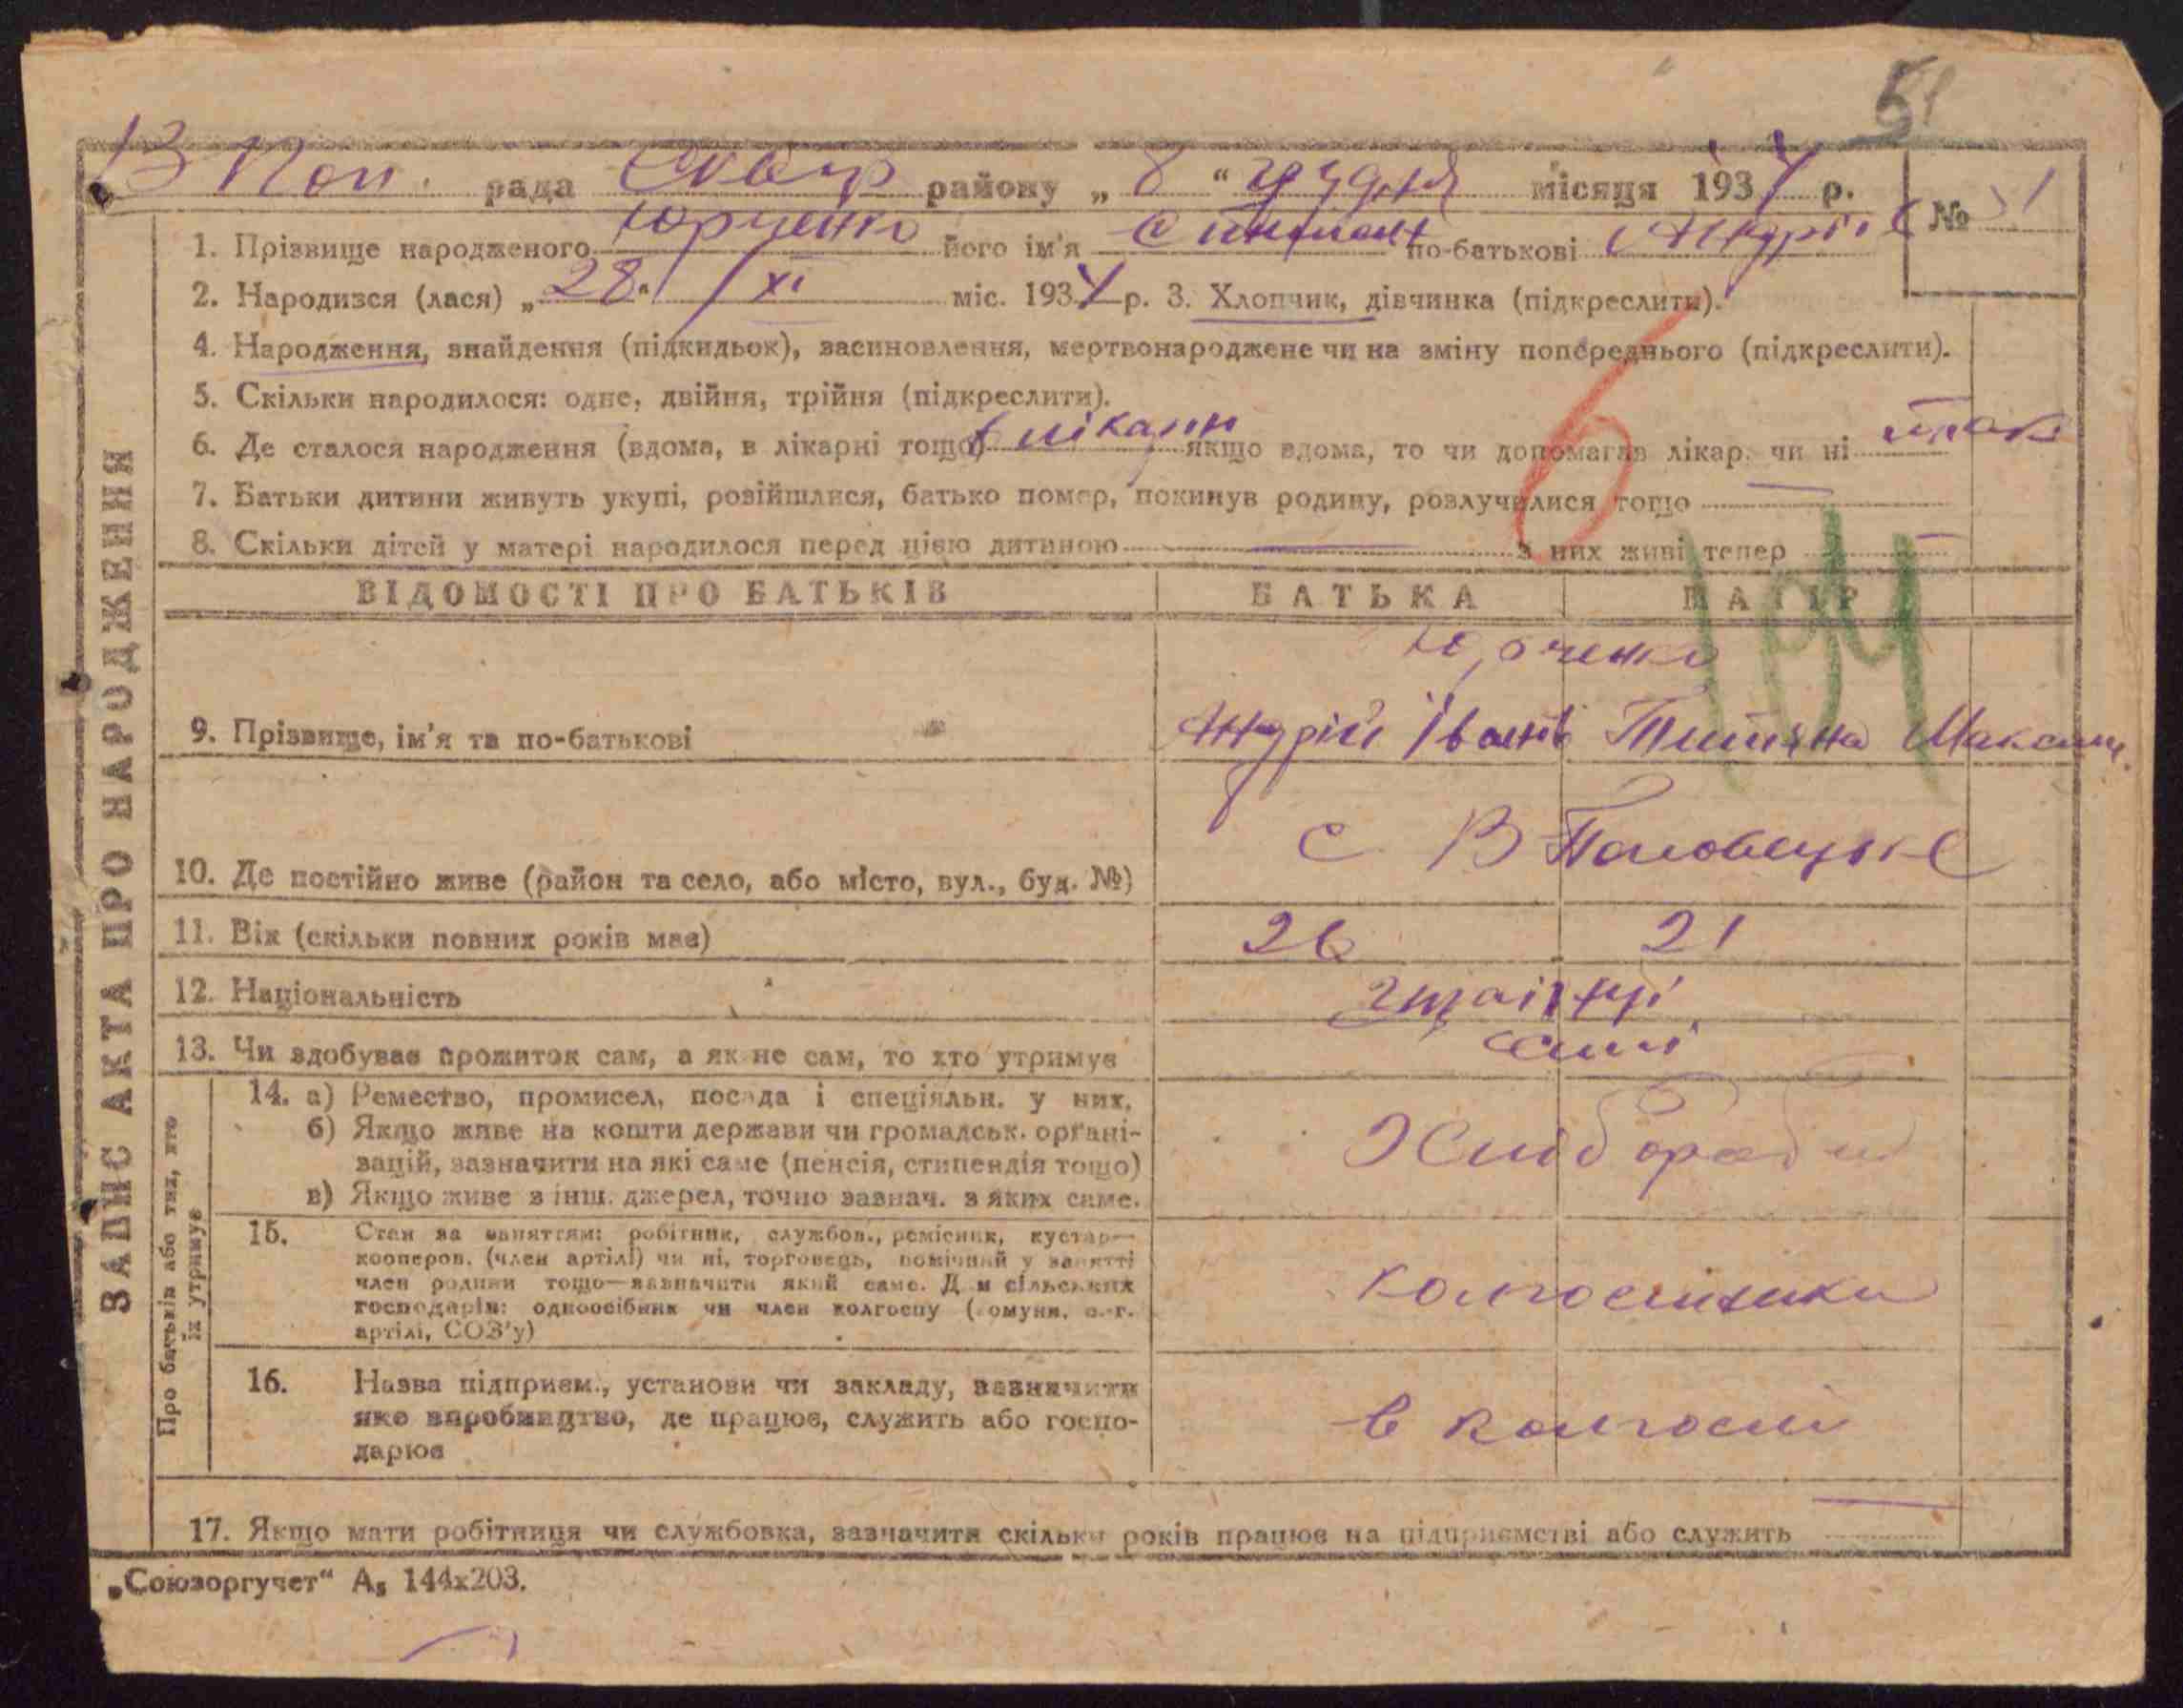 51
В Пол. рада Сквир району „ 8 “ грудня місяця 1934 р.
№ 51
1. Прізвище народженого Юрченко його ім'я по-батькові Андрій
2. Народився (лася) „ 28 “ / XI міс. 1934 р. 3. Хлопчик, дівчинка (підкреслити).
4. Народження, знайдення (підкидьок), засиновлення, мертвонароджене чи на зміну попереднього (підкреслити).
5. Скільки народилося: одне, двійня, трійня (підкреслити).
6. Де сталося народження (вдома, в лікарні тощо) в лікарн якщо вдома, то чи допомагав лікар. чи ні так
7. Батьки дитини живуть укупі, розійшлися, батько помер, покинув родину, розлучилися тощо —
8. Скільки дітей у матері народилося перед цією дитиною — з них живі тепер —
6
ЗАПИС АКТА ПРО НАРОДЖЕННЯ
ВІДОМОСТІ ПРО БАТЬКІВ БАТЬКА МАТІР
104
Юрченко
9. Прізвище, ім'я та по-батькові Андрій Іванів Титяна Максим.
10. Де постійно живе (район та село, або місто, вул., буд. №) с. В Половецьке
11. Вік (скільки повних років має) 26 21
12. Національність українці
13. Чи здобуває прожиток сам, а як не сам, то хто утримує самі
Про батьків або тих, хто їх утримує
14. а) Ремество, промисел, посада і спеціяльн. у них,
б) Якщо живе на кошти держави чи громадськ. органі-
зацій, зазначити на які саме (пенсія, стипендія тощо)
в) Якщо живе з інш. джерел, точно зазнач. з яких саме.
Хлібороби
15. Стан за заняттям: робітник, службов., ремісник, кустар—
кооперов. (член артілі) чи ні, торговець, помічний у занятті
член родини тощо—зазначити який саме. Для сільських
господарів: одноосібник чи член колгоспу (комуни, с.-г.
артілі, СОЗ'у)
колгоспники
16. Назва підприєм., установи чи закладу, зазначити
яке виробництво, де працює, служить або госпо-
дарює
в колгоспі
17. Якщо мати робітниця чи службовка, зазначити скільки років працює на підприємстві або служить —
„Союзоргучет“ А₅ 144х203.